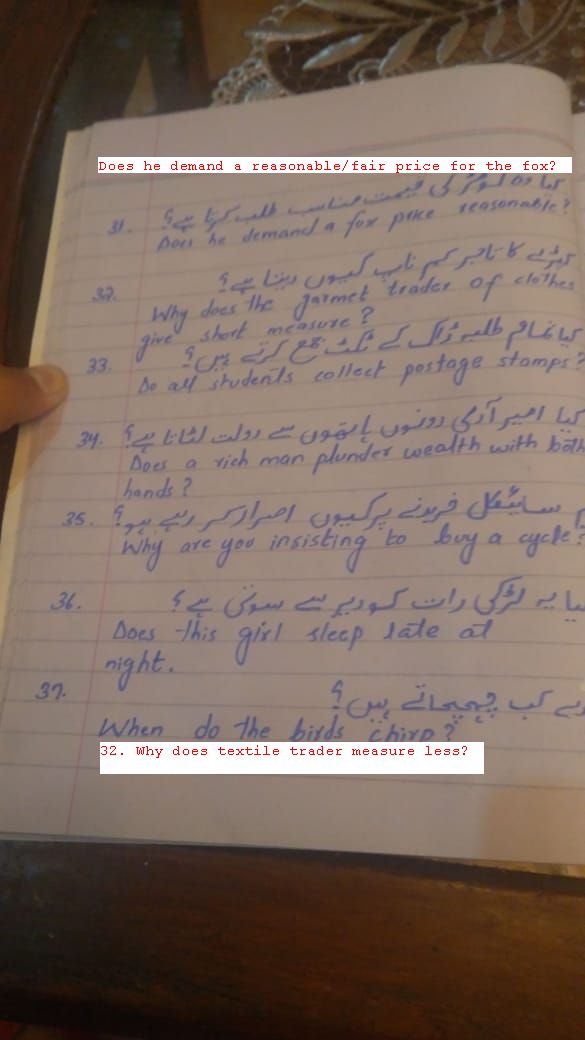 Does he demand a reasonable/fair price for the fox?
31. کیا وہ لومڑ کی قیمت مناسب طلب کرتا ہے؟
Does he demand a fox price reasonable?
32. کپڑے کا تاجر کم ناپ کیوں دیتا ہے؟
Why does the garmet trader of clothes
give short measure?
33. کیا تمام طلبہ ڈاک کے ٹکٹ جمع کرتے ہیں؟
Do all students collect postage stamps?
34. کیا امیر آدمی دونوں ہاتھوں سے دولت لٹاتا ہے؟
Does a rich man plunder wealth with both
hands?
35. سائیکل خریدنے پر کیوں اصرار کر رہے ہو؟
Why are you insisting to buy a cycle?
36. یہ لڑکی رات کو دیر سے سوتی ہے؟
Does this girl sleep late at
night.
37. کب چہچہاتے ہیں؟
When do the birds chirp?
32. Why does textile trader measure less?